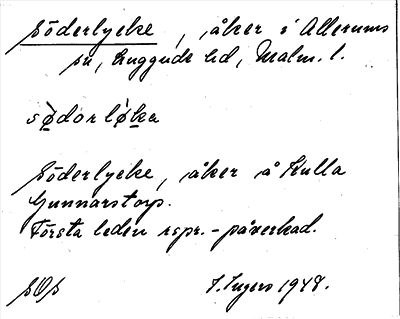 Söderlycke, åker i Allerums
sn, Luggude hd, Malm. l.
sødorløka
Söderlycke, åker å Kulla
Gunnarstorp.
Första leden rspr.-påverkad.
I. Ingers 1948.